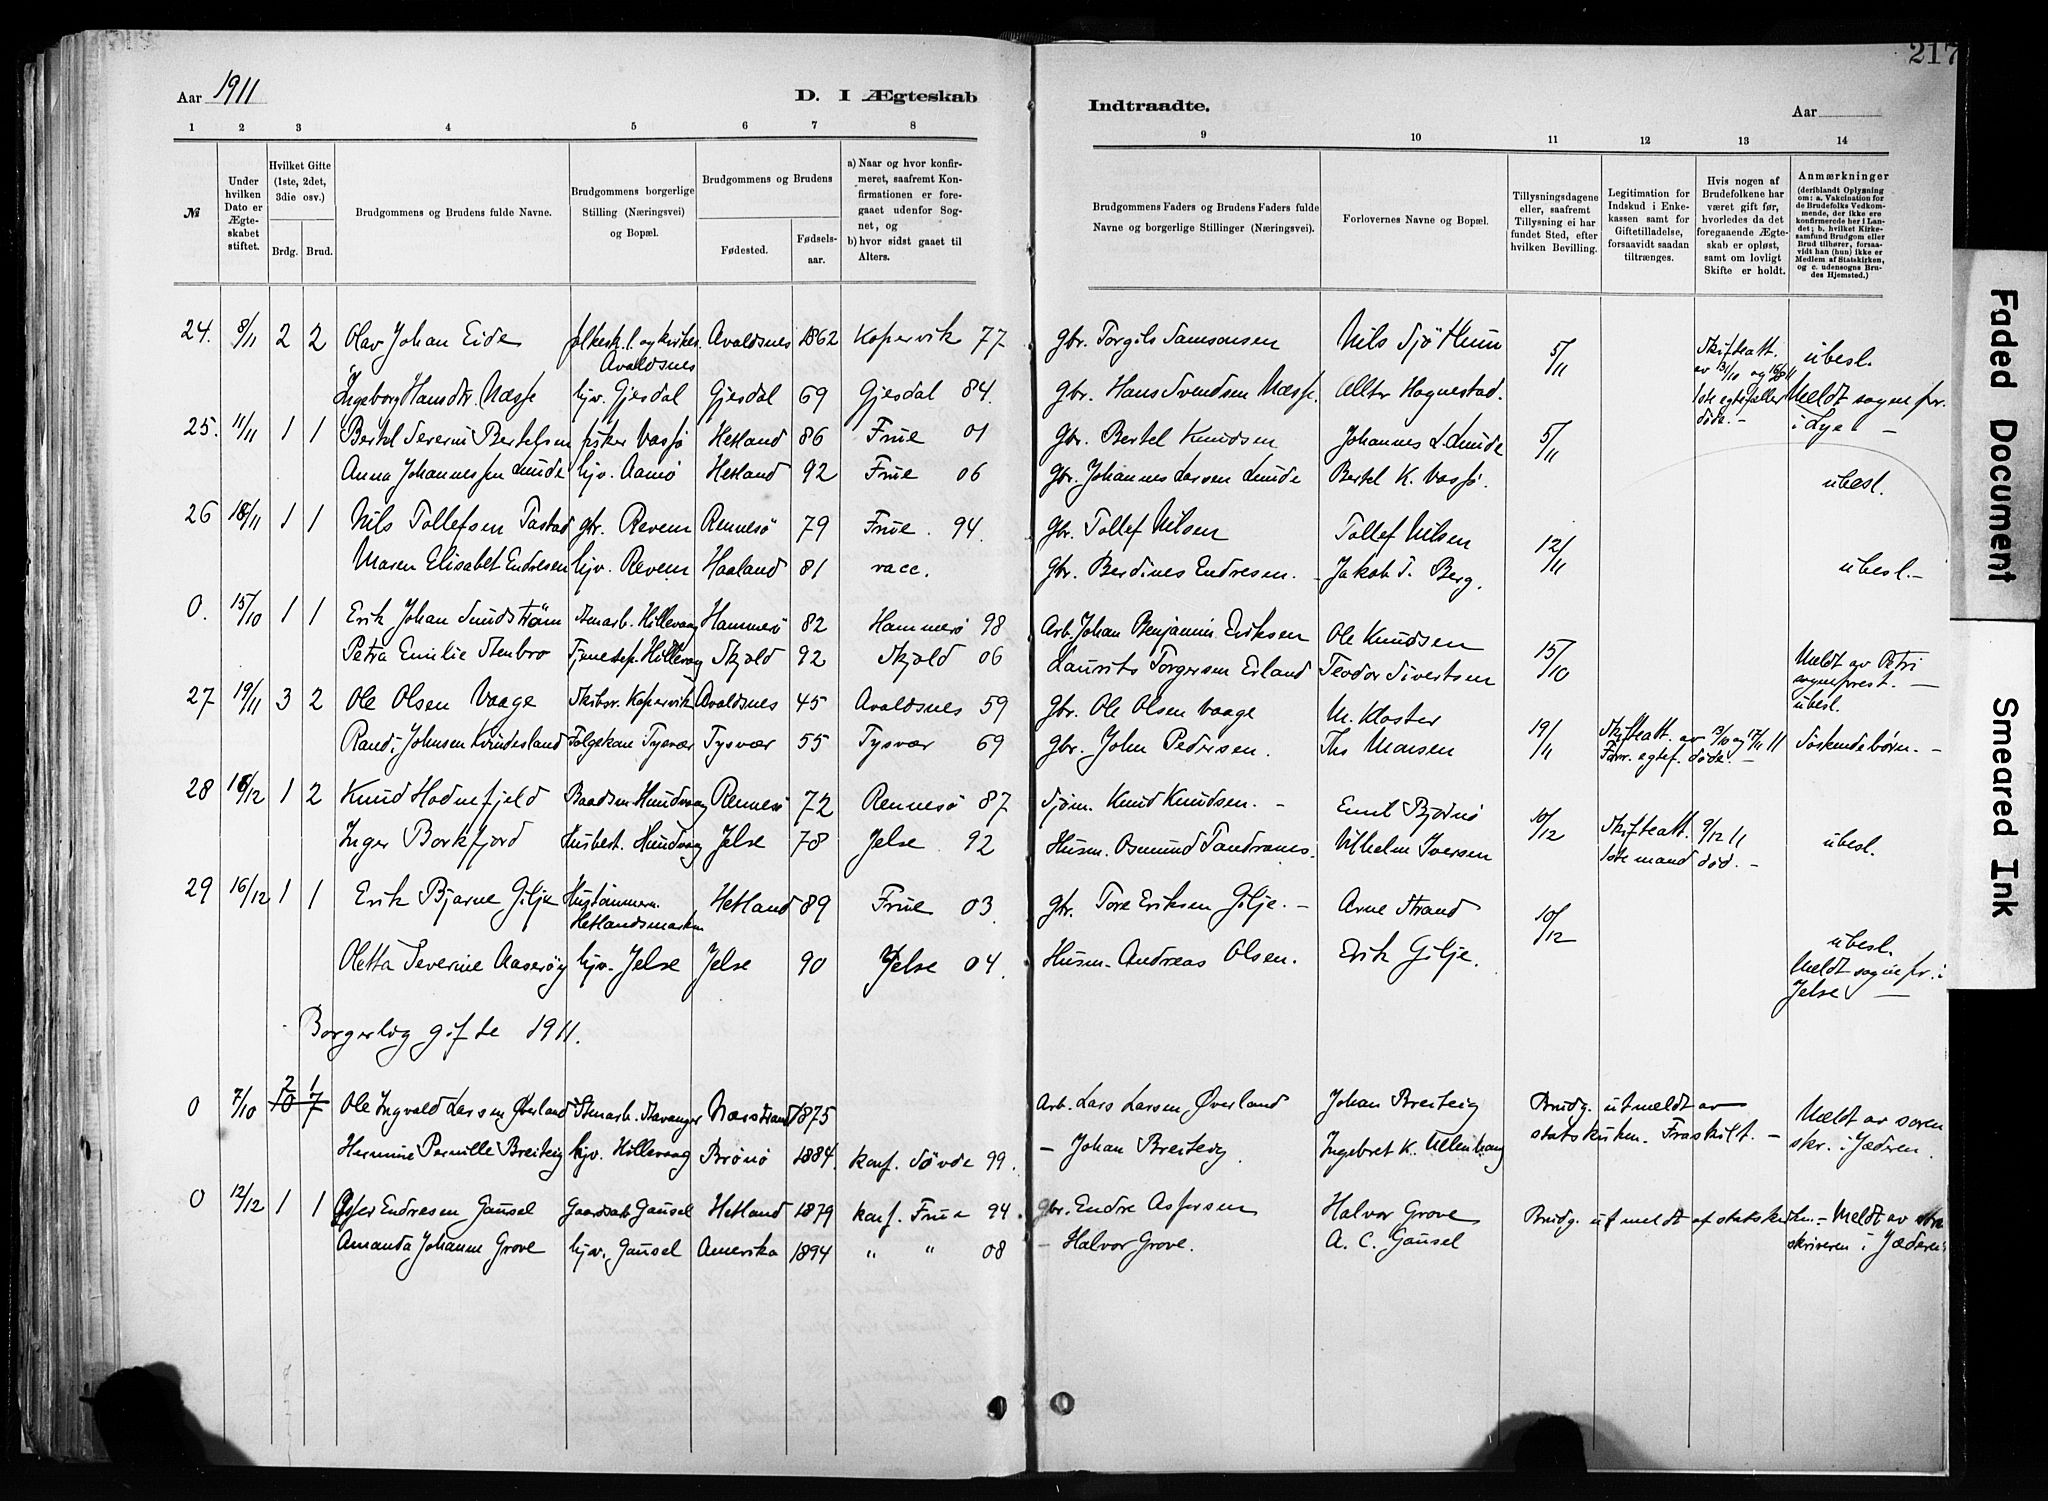 Aar 1911
D. I Ægteskab
Indtraadte.
Aar
217
1 2 3 4 5 6 7 8 9 10 11 12 13 14
№
Under hvilken Dato er Ægteskabet stiftet.
Hvilket Gifte (1ste, 2det, 3die osv.)
Brdg. Brud.
Brudgommens og Brudens fulde Navne.
Brudgommens borgerlige Stilling (Næringsvei) og Bopæl.
Brudgommens og Brudens
Fødested. Fødselsaar.
a) Naar og hvor konfirmeret, saafremt Konfirmationen er foregaaet udenfor Sognet, og
b) hvor sidst gaaet til Alters.
Brudgommens Faders og Brudens Faders fulde Navne og borgerlige Stillinger (Næringsvei).
Forlovernes Navne og Bopæl.
Tillysningsdagene eller, saafremt Tillysning ei har fundet Sted, efter hvilken Bevilling.
Legitimation for Indskud i Enkekassen samt for Giftetilladelse, forsaavidt saadan tiltrænges.
Hvis nogen af Brudefolkene har været gift før, hvorledes da det foregaaende Ægteskab er opløst, samt om lovligt Skifte er holdt.
Anmærkninger
(deriblandt Oplysning om: a. Vaccination for de Brudefolks Vedkommende, der ikke ere konfirmerede her i Landet; b. hvilket Kirkesamfund Brudgom eller Brud tilhører, forsaavidt han (hun) ikke er Medlem af Statskirken, og c. udensogns Brudes Hjemsted.)
24. 8/11 2 2 Olav Johan Eide folkesk.l. og kirkes. Avaldsnes Avaldsnes 1862 Kopervik 77 gbr. Torgils Samsonsen Nils Sjöthun 5/11 Skifteatt. ubesl.
Ingeborg Hansdtr. Næsse hjv. Gjesdal Gjesdal 69 Gjesdal 84. gbr. Hans Svendsen Næsse. Alltr Hognestad. 1ste egtefæller døde. – Meldt sognepr. i Lye –
25. 11/11 1 1 Bertel Severin Bertelsen fisker Vassö Hetland 86 Frue 01 gbr. Bertel Knudsen Johannes L. Lunde 5/11
Anna Johannessen Lunde hjv. Aamö Hetland 92 Frue 06 gbr. Johannes Larsen Lunde Bertel K. Vassö. ubesl.
26 18/11 1 1 Nils Tollefsen Tastad gbr. Revem Rennesö 79 Frue. 94. gbr. Tollef Nilsen Tollef Nilsen 12/11
Maren Elisabet Endresen hjv. Revem Haaland 81 vacc. gbr. Berdines Endresen. – Jakob T. Berg. ubesl. –
0. 15/10 1 1 Erik Johan Sundström Stenarb. Hillevaag Hammerö 82 Hammerö 98 Arb. Johan Benjamin Eriksen Ole Knudsen 15/10
Petra Emilie Stenbro Tjenestep. Hillevaag Skjold 92 Skjold 06 Laurits Torgersen Erland Teodor Sivertsen Meldt av Petri sogneprest. –
27 19/11 3 2 Ole Olsen Vaage Skibsr. Kopervik Avaldsnes 45 Avaldsnes 59 gbr. Ole Olsen Vaage M. Kloster 19/11 ubesl.
Randi Johnsen Kvindesland Folgekone Tysvær Tysvær 55 Tysvær 69 gbr. John Pedersen. Ths Monsen Skifteatt. av 13/10 og 17/11 11 Forr. egtef. døde. – Søskendebørn. –
28 16/12 1 2 Knud Hodnefjeld Baadsm. Hundvaag Rennesö 72 Rennesö 87 Sjøm. Knud Knudsen. – Emil Bjørnö 10/12 Skifteatt. 9/12 11
Inger Borkfjord Husbest. Hundvaag Jelse 78 Jelse. 92 Husm. Osmund Tandranes. Vilhelm Iversen 1ste mand død. – ubesl.
29 16/12 1 1 Erik Bjarne Gilje Hustømmerm. Hetlandsmarken Hetland 89 Frue 03. gbr. Tore Eriksen Gilje. – Arne Strand 10/12
Oletta Severine Aaserøy hjv. Jelse Jelse 90 Jelse 04. Husm. Andreas Olsen. Erik Gilje. ubesl. Meldt sognepr. i Jelse –
Borgerlig gifte 1911.
0 7/10 2 1 Ole Ingvald Larsen Øverland Stenarb. Stavanger Narstrand 1875 Arb. Lars Larsen Øverland Johan Breiteig Brudg. utmeldt av statskirken. Fraskilt. – Meldt av soren skr. i Jæderen.
Hermine Pernille Breiteig hjv. Hillevaag Brönö 1884. konf. Sövde 99. – Johan Breiteig. Ingebret K. Ullenhaug
0 12/12 1 1 Asser Endresen Gausel Gaardsarb. Gausel Hetland 1879 konf. Frue 94. Gbr. Endre Assersen Halvor Grove Brudg. utmeldt af statskirken. – Meldt av soren
Amanda Johanne Grove hjv. Gausel Amerika 1894 " " 08 – Halvor Grove. A. C. Gausel skriveren i Jæderen
Faded Document
Smeared Ink